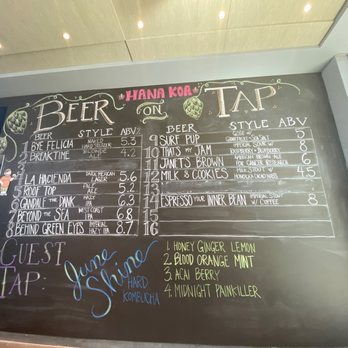 HANA KOA
BEER ON TAP
BEER STYLE ABV%
1 BYE FELICIA 5.3
2 BREAKTIME 4.2
LA HACIENDA 5.6
5 ROOF TOP 5.2
6 GANDALF THE PANK IPA 6.3
7 BEYOND THE SEA IPA 6.8
8 BEHIND GREEN EYES IMPERIAL 8.7
BEER STYLE ABV
9 SURF PUP 5
10 THAT'S MY JAM IMPERIAL SOUR W/ RASPBERRY 8
11 JANET'S BROWN AMERICAN BROWN ALE FOR CANCER RESEARCH 6
12 MILK & COOKIES MILK STOUT W/ 4.5
14 ESPRESSO YOUR INNER BEAN IMPERIAL STOUT W/ COFFEE 8
15
16
GUEST TAP:
June Shine
HARD KOMBUCHA
1. HONEY GINGER LEMON
2. BLOOD ORANGE MINT
3. ACAI BERRY
4. MIDNIGHT PAINKILLER